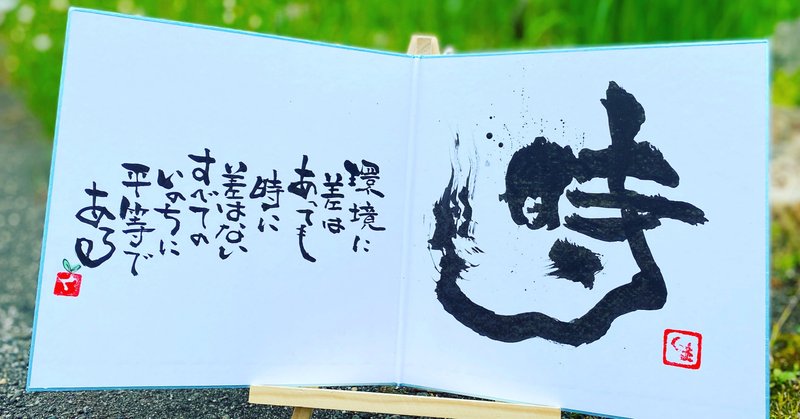 時
くま
環境に
差は
あっても
時に
差はない
すべての
いのちに
平等で
ある